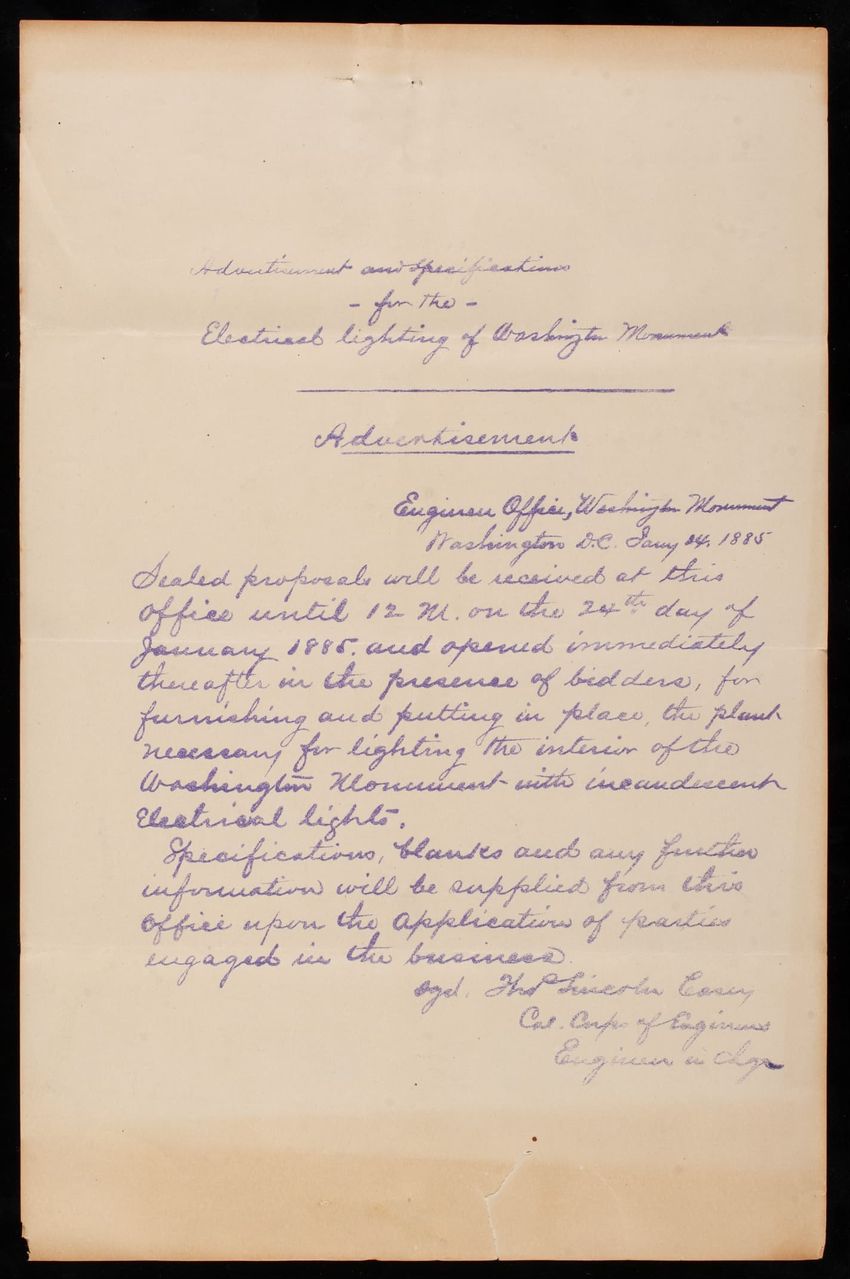 Advertisement and Specifications
- for the -
Electrical lighting of Washington Monument
Advertisement
Engineer Office, Washington Monument
Washington D.C. Jany 14. 1885
Sealed proposals will be received at this
Office until 12 M. on the 24th day of
January 1885. and opened immediately
thereafter in the presence of bidders, for
furnishing and putting in place, the plant
necessary for lighting the interior of the
Washington Monument with incandescent
Electrical lights.
Specifications, blanks and any further
information will be supplied from this
Office upon the application of parties
engaged in the business.
sgd. Thos Lincoln Casey
Col. Corps of Engineers
Engineer in chge